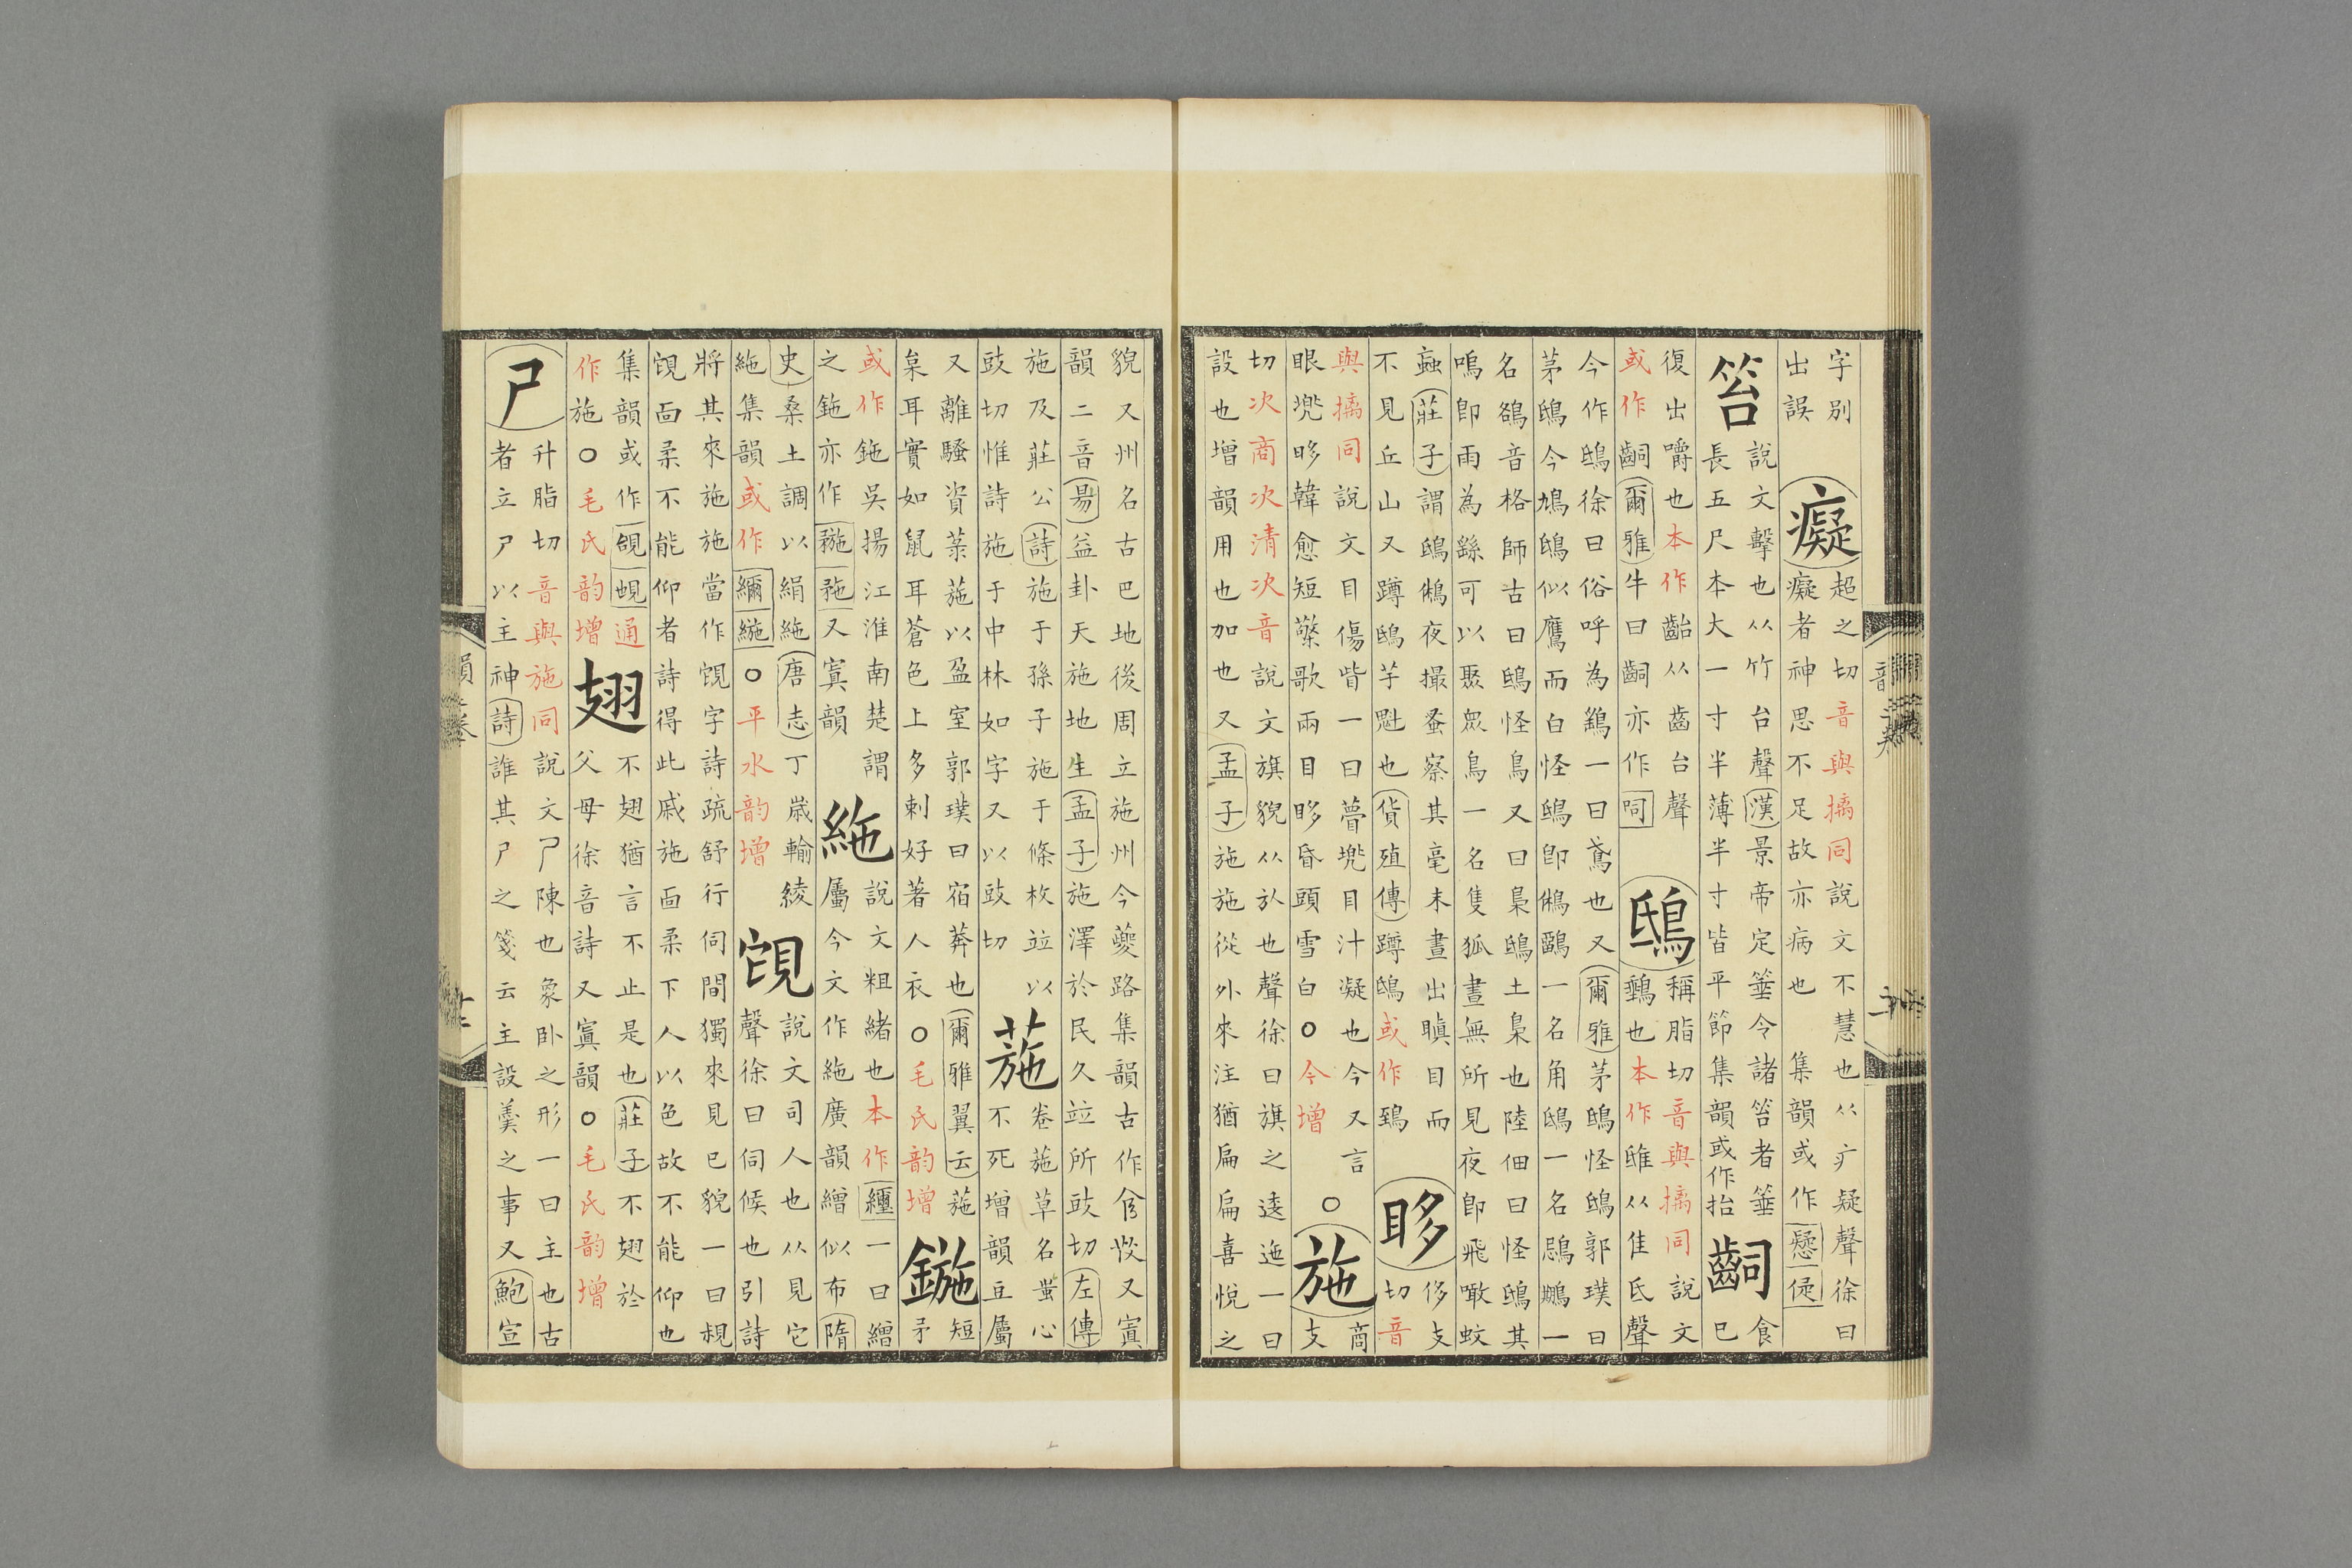 字別
出誤
癡
超之切音與摛同說文不慧也从疒疑聲徐曰
癡者神思不足故亦病也 集韻或作懝佷
笞
說文擊也从竹台聲漢景帝定箠令諸笞者箠
長五尺本大一寸半薄半寸皆平節集韻或作抬
齝
食
已
復出嚼也本作齝从齒台聲
或作齝爾雅牛曰齝亦作呞
鴟
稱脂切音與摛同說文
鷂也本作䧴从隹氐聲
今作鴟徐曰俗呼為鷂一曰鳶也又爾雅茅鴟怪鴟郭璞曰
茅鴟今鳩鴟似鷹而白怪鴟即鵂鶹一名角鴟一名鵩一
名鵅音格師古曰鴟怪鳥又曰梟鴟土梟也陸佃曰怪鴟其
鳴即雨為繇可以聚眾鳥一名隻狐晝無所見夜即飛噉蚊
蝱莊子謂鴟鵂夜撮蚤察其毫末晝出瞋目而
不見丘山又蹲鴟芋魁也貨殖傳蹲鴟或作鵄
眵
侈支
切音
與摛同說文目傷眥一曰瞢兠目汁凝也今又言
眼兠眵韓愈短檠歌兩目眵昏頭雪白○今增
○
施
商
支
切次商次清次音說文旗貌从㫃也聲徐曰旗之逶迤一曰
設也增韻用也加也又孟子施施從外來注猶扁扁喜悅之
貌又州名古巴地後周立施州今夔路集韻古作㒱㢮又寘
韻二音易益卦天施地生孟子施澤於民久竝所豉切左傳
施及莊公詩施于孫子施于條枚竝以
豉切惟詩施于中林如字又以豉切
葹
卷葹草名蚩心
不死增韻豆屬
又離騷資菉葹以盈室郭璞曰宿莽也爾雅翼云葹短
枲耳實如鼠耳蒼色上多刺好著人衣○毛氏韵增
鍦
矛
或作鉇吳揚江淮南楚謂
之鉇亦作𥎞𥍸又寘韻
絁
說文粗緒也本作纚一曰繒
屬今文作絁廣韻繒似布隋
史桑土調以絹絁唐志丁歲輸綾
絁集韻或作纚䌤○平水韵增
覗
說文司人也从見它
聲徐曰伺候也引詩
將其來施施當作覗字詩疏舒行伺間獨來見己貌一曰規
覗面柔不能仰者詩得此戚施面柔下人以色故不能仰也
集韻或作䚷䙾通
作施○毛氏韵增
翅
不翅猶言不止是也莊子不翅於
父母徐音詩又寘韻○毛氏韵增
尸
升脂切音與施同說文尸陳也象卧之形一曰主也古
者立尸以主神詩誰其尸之箋云主設羹之事又鮑宣